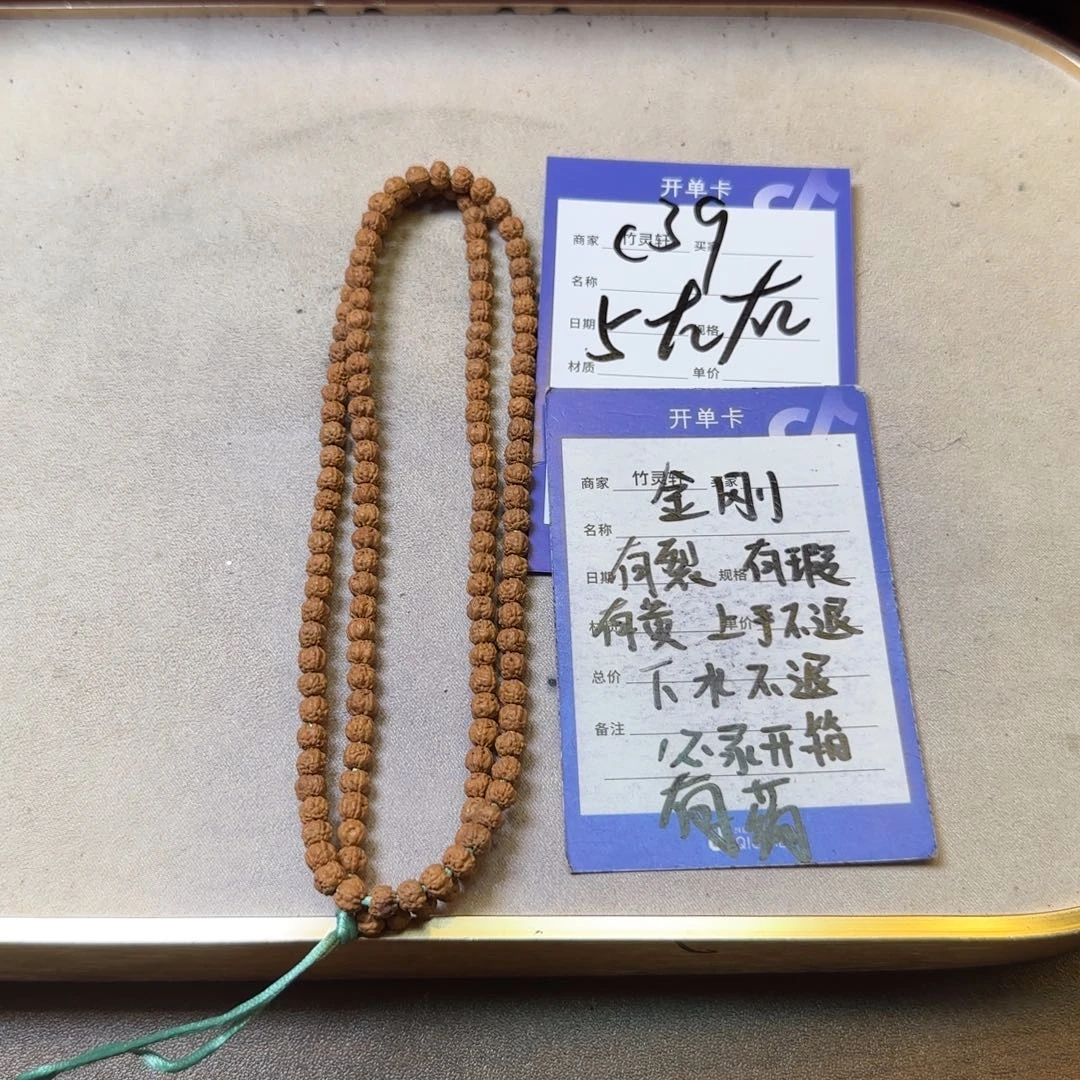 开单卡
商家 竹灵轩 买家
c39
名称
5尢尢
日期 规格
材质 单价
开单卡
商家 竹灵轩 买家
金刚
名称
有裂 有瑕
日期 规格
有黄 上手不退
单价
总价
下水不退
备注
必录开箱
有药